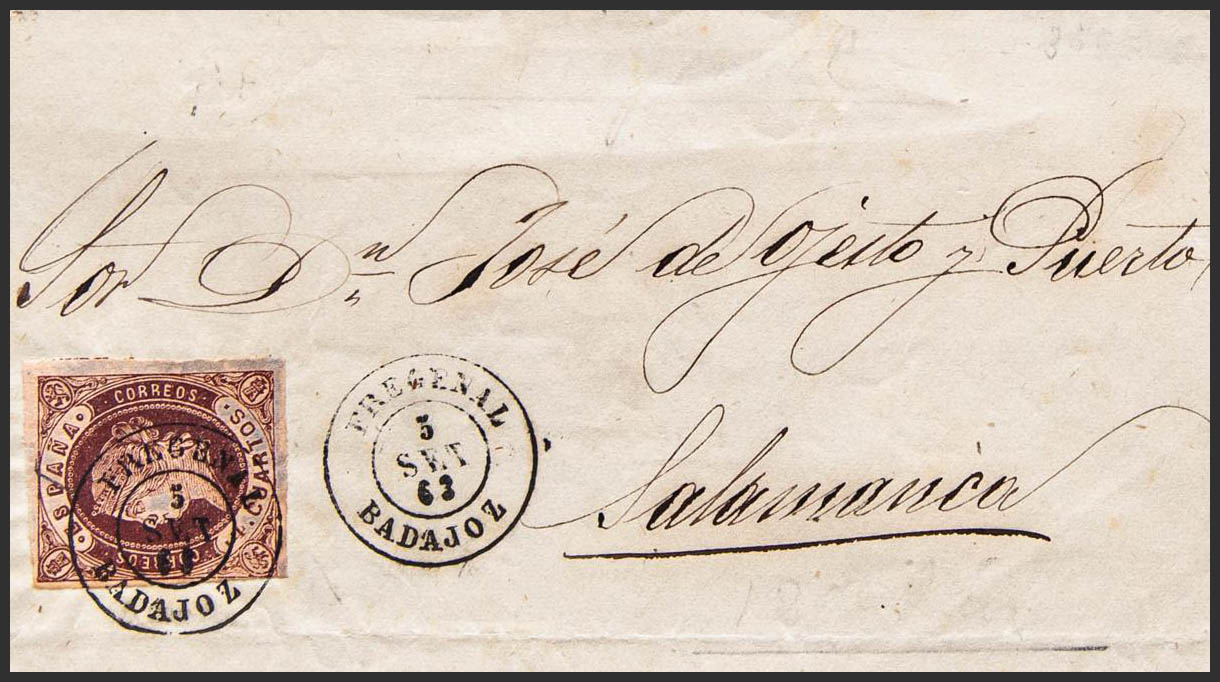 Sor Dn José de Ojesto y Puerto
Salamanca
CORREOS
ESPAÑA
CUARTOS
CORREOS
FREGENAL
5
SET
63
BADAJOZ
FREGENAL
5
SET
63
BADAJOZ